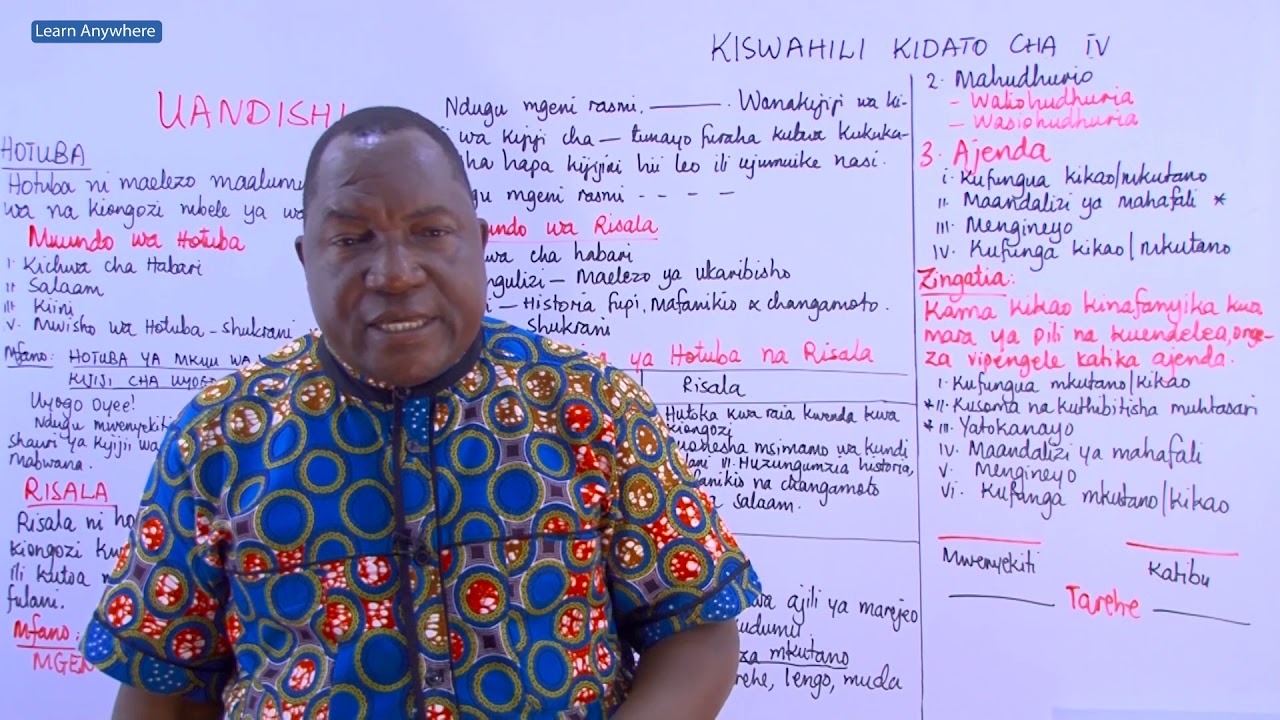 Learn Anywhere
KISWAHILI KIDATO CHA IV
UANDISHI
HOTUBA
Hotuba ni maelezo maalumu
wa na kiongozi mbele ya
Muundo wa Hotuba
I. Kichwa cha Habari
II Salaam
III Kiini
V. Mwisho wa Hotuba - shukrani
Mfano: HOTUBA YA MKUU WA
KIJIJI CHA UYOGO
Uyogo Oyee!
Ndugu mwenyekiti
shauri ya Kijiji wa
Mabwana.
RISALA
Risala ni
kiongozi
ili kutoa
fulani.
Mfano:
Ndugu mgeni rasmi. ——. Wanakijiji wa ki-
wa kijiji cha — tunayo furaha kubwa kukuka-
hapa kijijini hii leo ili ujumuike nasi.
mgeni rasmi - - - -
wa Risala
cha habari
— Maelezo ya ukaribisho
— Historia fupi, Mafanikio & changamoto.
shukrani
ya Hotuba na Risala
Risala
Hutoka kwa raia kwenda kwa
kiongozi
msimamo wa kundi
III. Huzungumzia historia,
na changamoto
salaam.
ajili ya marejeo
mkutano
lengo, muda
2. Mahudhurio
- Waliohudhuria
- Wasiohudhuria
3. Ajenda
i. Kufungua kikao/mkutano
II. Maandalizi ya mahafali *
III. Mengineyo
IV. Kufunga kikao/mkutano
Zingatia:
Kama kikao kinafanyika kwa
mara ya pili na kuendelea, onge-
za vipengele katika ajenda.
I. Kufungua mkutano/kikao
*II. Kusoma na kuthibitisha muhtasari
*III. Yatokanayo
IV. Maandalizi ya mahafali
V. Mengineyo
VI. Kufunga mkutano/kikao
Mwenyekiti
Katibu
Tarehe